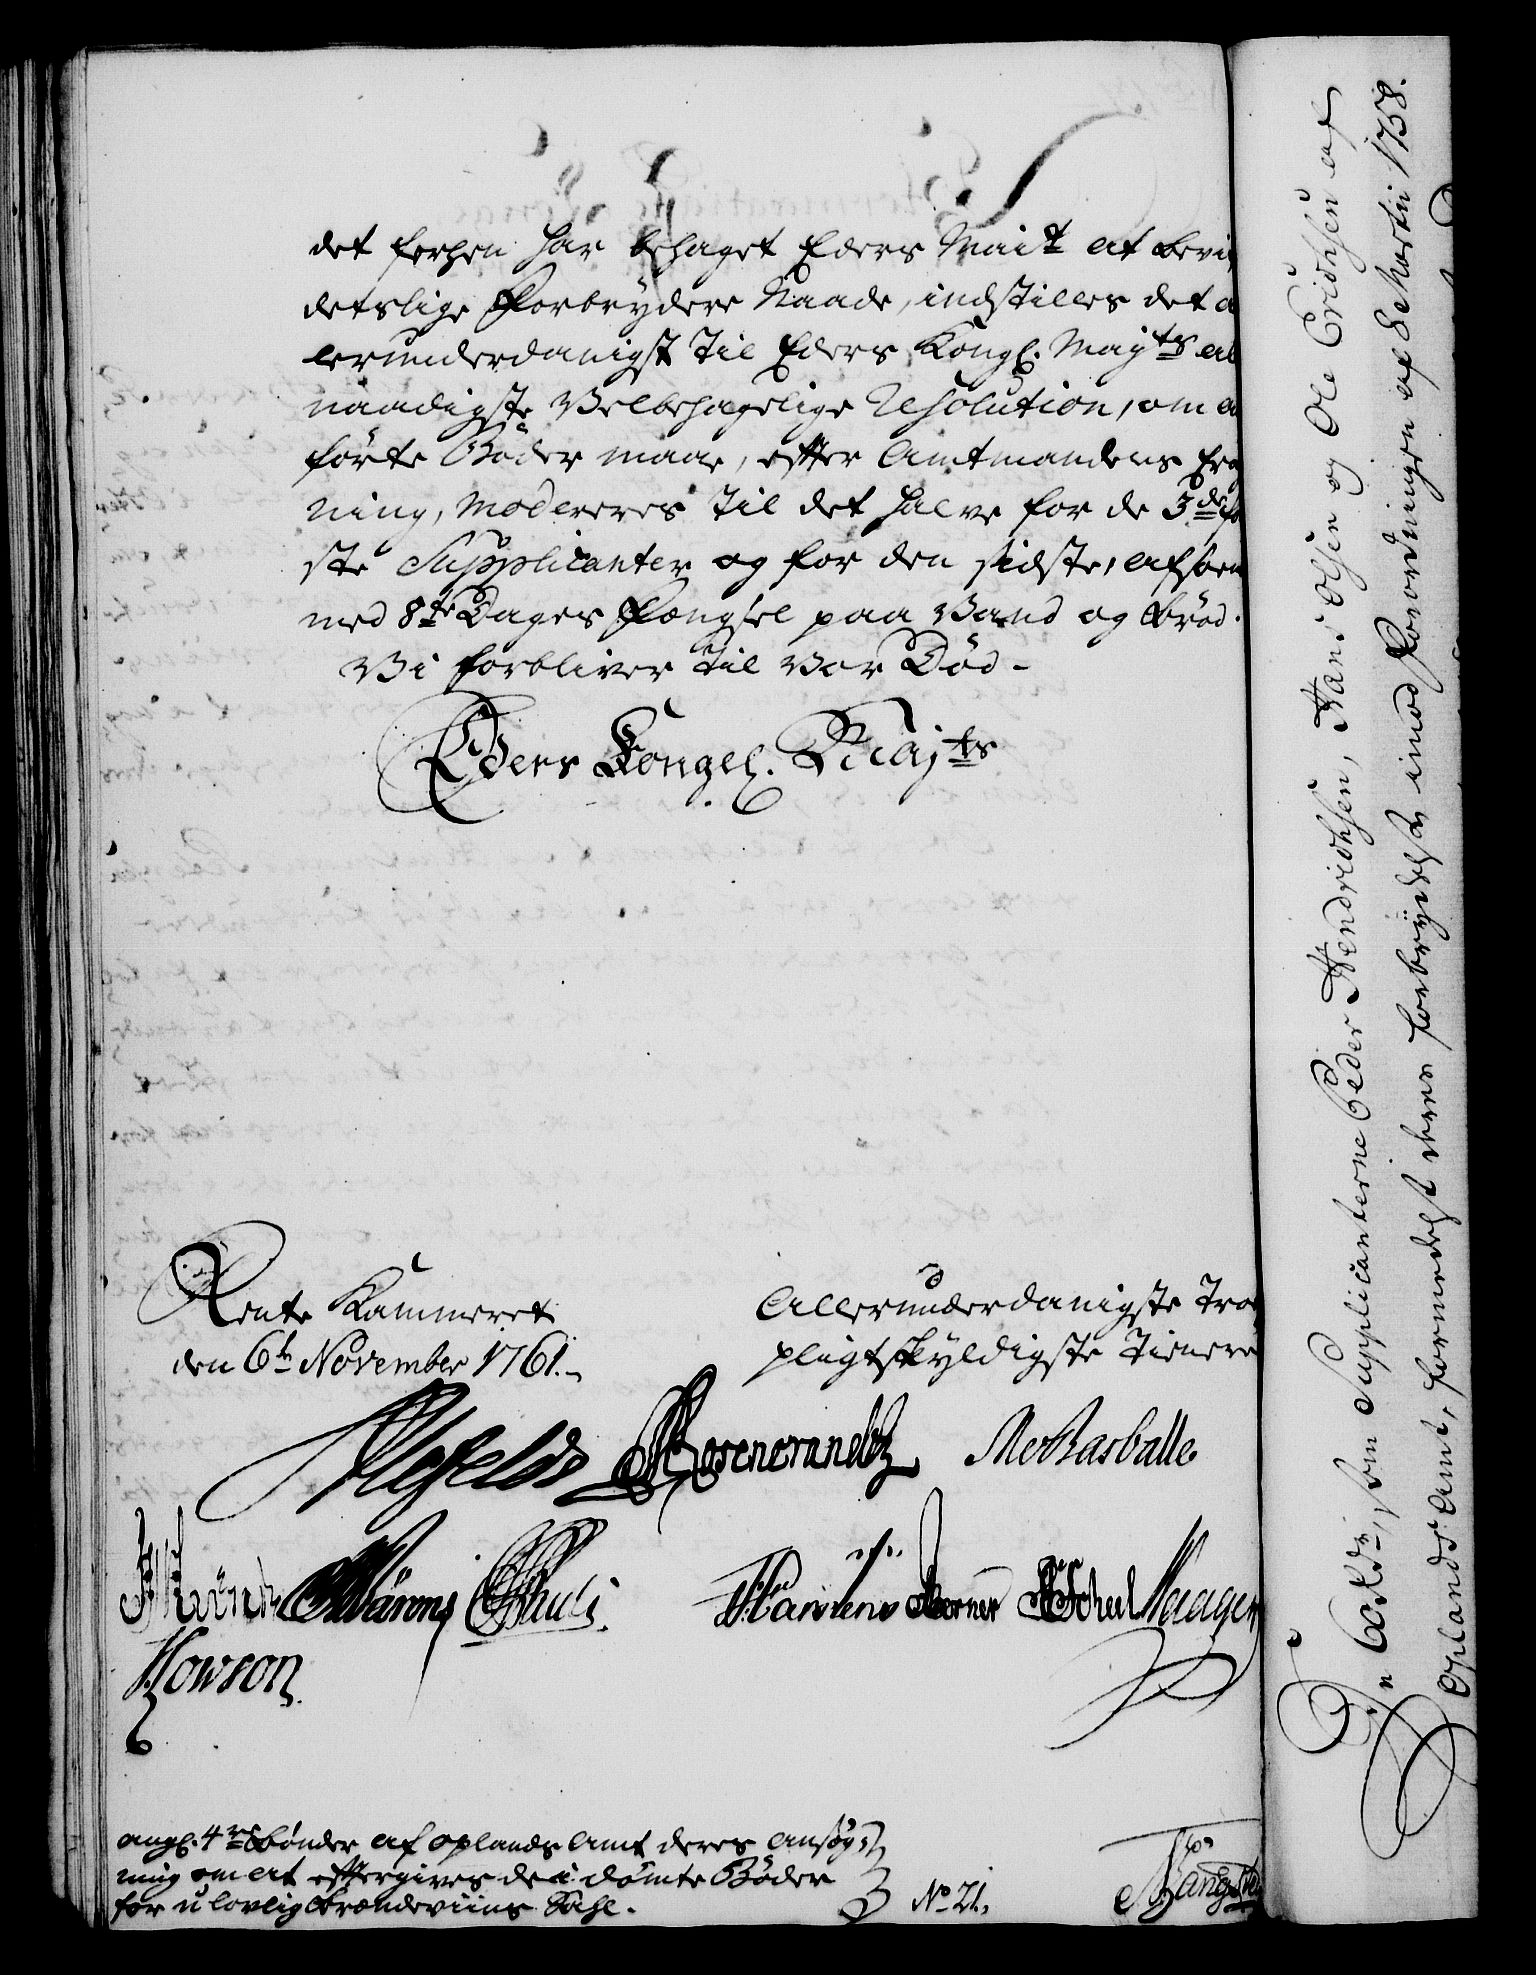 det forhen har behaget Eders Mait at bevi
detslige Forbrydere Naade, indstilles det a
lerunderdanigst til Eders Kongl. Mayts al
naadigste Velbehagelige Resolution, om a
førte Bøder maae, efter Amtmandens Er
ning, modereres til det halve for de 3de før
ste Supplicanter og for den sidste, afsoen
med 8te Dages Fængsel paa Vand og Brød.
Vi forbliver til Vor Død -
Eders Kongel. Majts
Rente Kammeret
den 6te November 1761.
Allerunderdanigste Tro
pligtskyldigste Tienere
Ahlefeldt Rosencrandtz
Schuli Hansen Berner
Howson
angl. 4re Bønder af Oplands Amt deres ansøg
ning om at eftergives de idømte Bøder
for ulovlig Brændeviins Sahl.
No 21.
60 rd, som Supplicanterne Peder Hendrichsen, Hans Olsen og Ole Erichsen af
Oplands Amt, formedelst deres forbrydelse imod Forordningen af 8 Martii 1758.